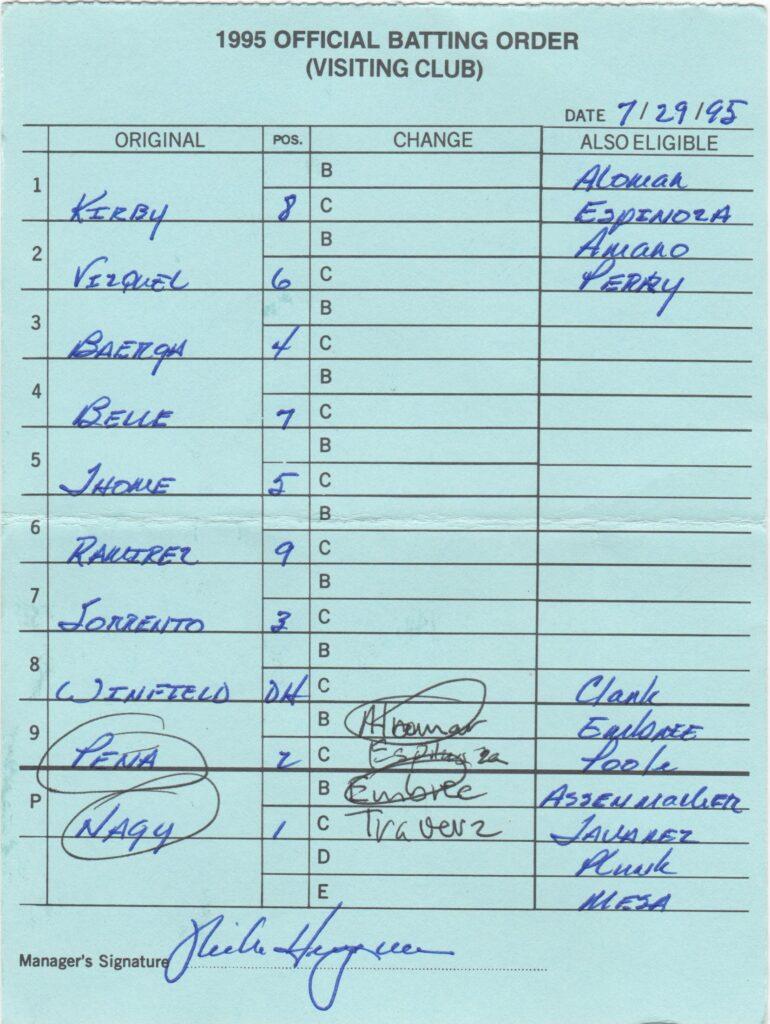 1995 OFFICIAL BATTING ORDER
(VISITING CLUB)
DATE 7/29/95
ORIGINAL POS. CHANGE ALSO ELIGIBLE
1 B Alomar
KIRBY 8 C ESPINOZA
2 B Amaro
VIZQUEL 6 C PERRY
3 B
BAERGA 4 C
4 B
BELLE 7 C
5 B
THOME 5 C
6 B
RAMIREZ 9 C
7 B
SORRENTO 3 C
8 B
WINFIELD DH C Clark
9 B Alomar EMBREE
PENA 2 C Espinoza Poole
P B Embree ASSENMACHER
NAGY 1 C Traverz TAVAREZ
D Plunk
E MESA
Manager's Signature